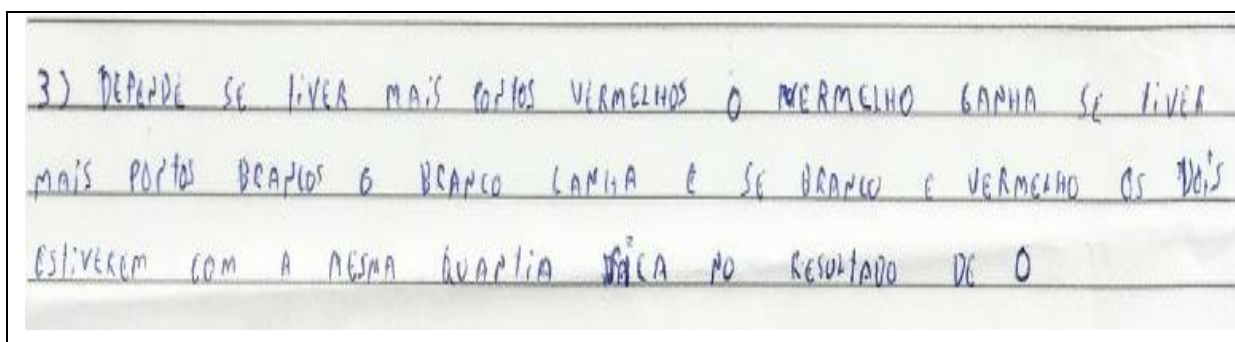 3) DEPENDE SE TIVER MAIS PONTOS VERMELHOS O VERMELHO GANHA SE TIVER
MAIS PONTOS BRANCOS O BRANCO GANHA E SE BRANCO E VERMELHO OS DOIS
ESTIVEREM COM A MESMA QUANTIA NO RESULTADO DE 0